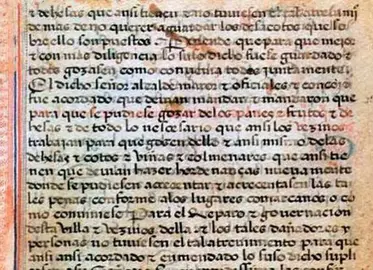 & dehesas que ansi tienen & no tuviesen el tabatresamj
de mas de no querer aguardar los desacotos que so
bre ello son puestos Porende que para que mejor
& con mas diligencia lo suso dicho fuese guardado &
todos gozasen como convenia todos juntamente
El dicho señor alcalde mayor & oficiales & concejo
fue acordado que devian mandar & mandaron que
para que se pudiese gozar de los panes & frutos & de
hesas & de todo lo nescesario que ansi los vezinos
trabajan para que gozen dello & ansi mismo de las
dehesas & cotos & viñas & colmenares que ansi tie
nen que devian hazer hordenanças nuevamente
donde se pudiesen acrecentar & acrecentasen las ta
les penas conforme a los lugares comarcanos o co
mo conviniese Para el Reparo & governaçion
desta villa & vezinos della & los tales dañadores &
personas no tuviesen el tal atrevimiento para que
ansi ansi acordado & enmendado lo suso dicho supli